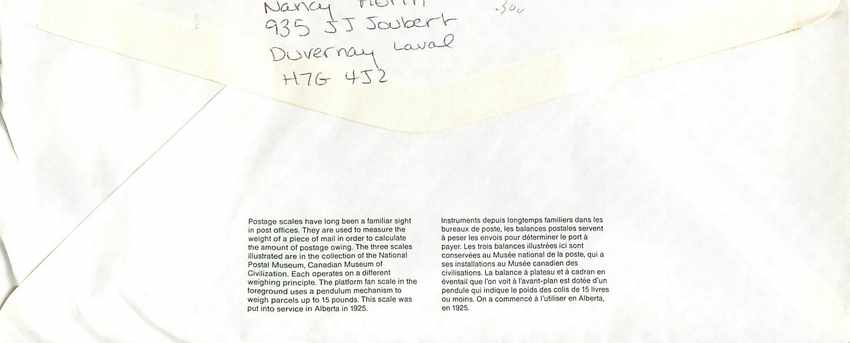 Nancy
935 JJ Joubert
Duvernay Laval
H7G 4J2
.50¢
Postage scales have long been a familiar sight
in post offices. They are used to measure the
weight of a piece of mail in order to calculate
the amount of postage owing. The three scales
illustrated are in the collection of the National
Postal Museum, Canadian Museum of
Civilization. Each operates on a different
weighing principle. The platform fan scale in the
foreground uses a pendulum mechanism to
weigh parcels up to 15 pounds. This scale was
put into service in Alberta in 1925.
Instruments depuis longtemps familiers dans les
bureaux de poste, les balances postales servent
à peser les envois pour déterminer le port à
payer. Les trois balances illustrées ici sont
conservées au Musée national de la poste, qui a
ses installations au Musée canadien des
civilisations. La balance à plateau et à cadran en
éventail que l'on voit à l'avant-plan est dotée d'un
pendule qui indique le poids des colis de 15 livres
ou moins. On a commencé à l'utiliser en Alberta,
en 1925.